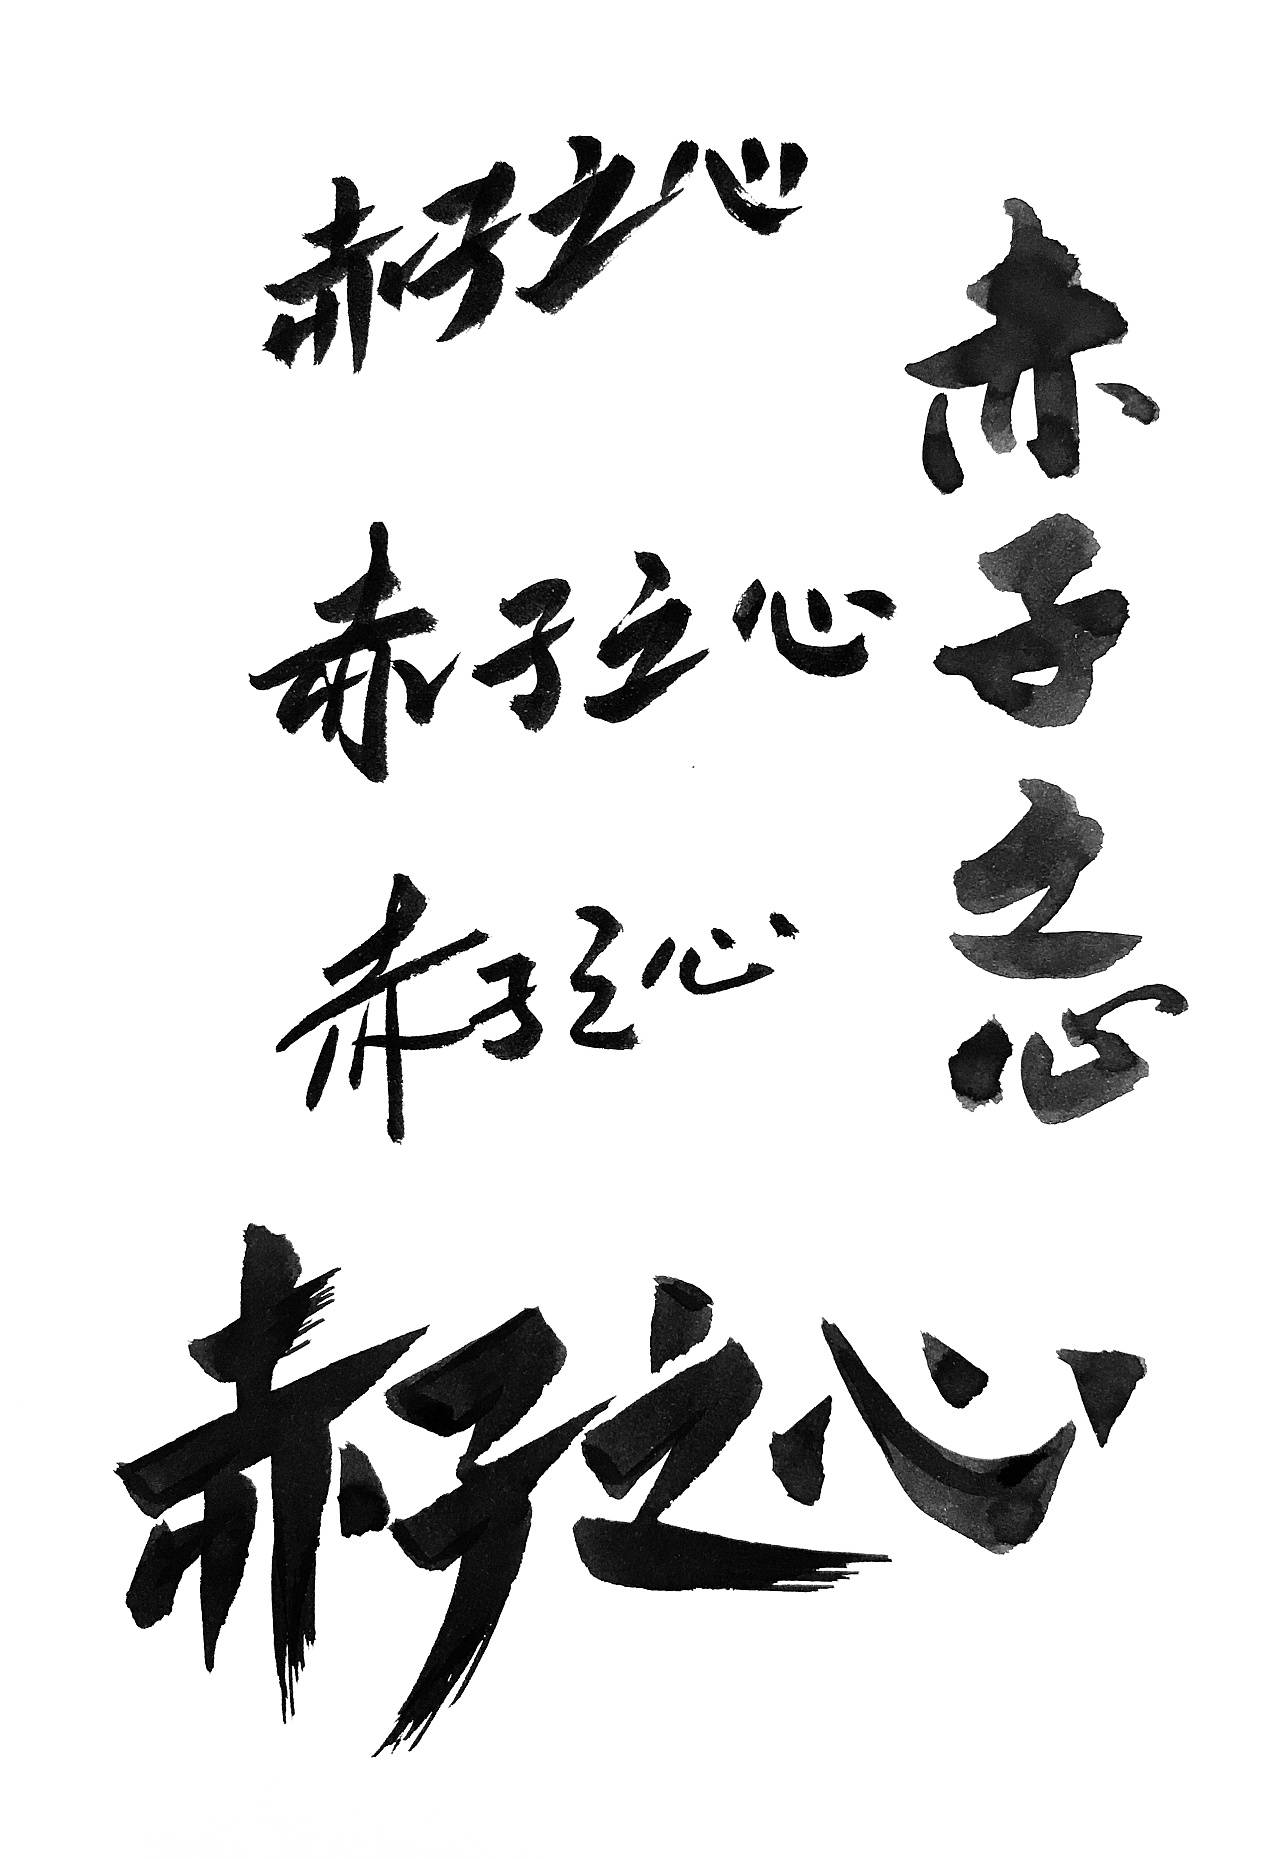 赤子之心
赤子之心
赤子之心
赤子之心
赤子之心